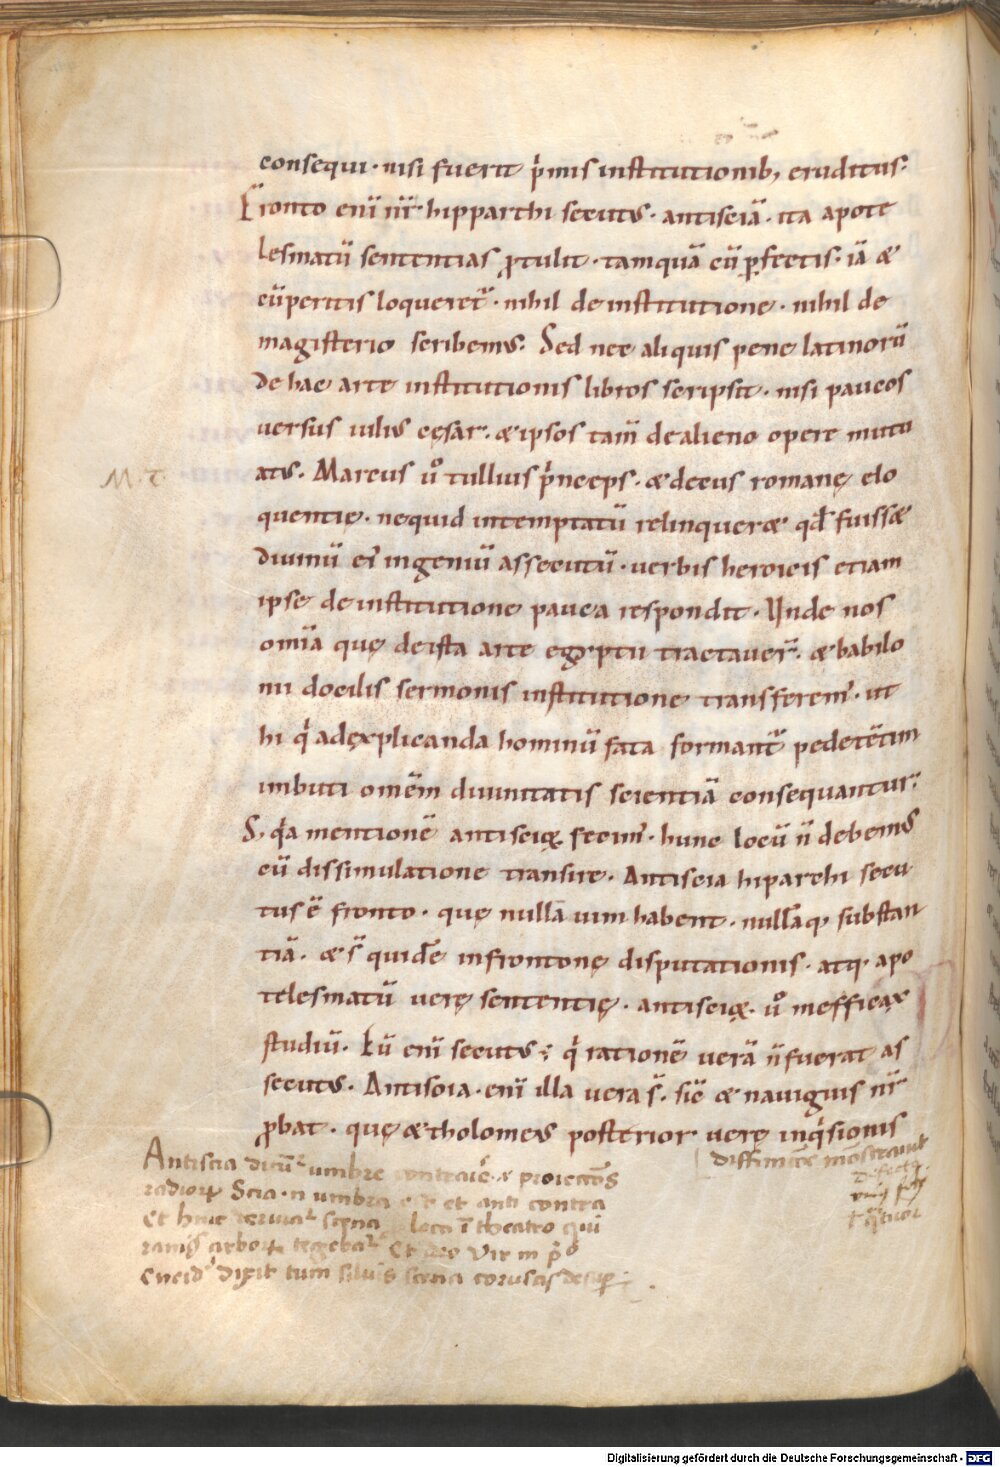 consequi · nisi fuerit p̍mis institutionib; eruditus:
Fronto eni̅ nr̅ · hipparchi secutus · antisciā · ita apote
lesmatū sententias ꝓtulit · tamquā cū ꝑfectis · iā &
cū peritis loqueret᷑ · nihil de institutione · nihil de
magisterio scribens. Sed nec aliquis pene latinorū
de hac arte institutionis libros scripsit · nisi paucos
uersus iulius cęsar · & ipsos tam̅ de alieno opere mutu
M · T ·
atus. Marcus ů tullius p̍nceps · & decus romanę elo
quentię · nequid intemptatū relinquer& qd̅ fuiss&
diuinū ei᷑ ingeniū assecutū · uerbis heroicis etiam
ipse de institutione pauca respondit · Unde nos
omīa quę de ista arte egyptii tractauer̅ · & babilo
nii docilis sermonis institutione transferem᷑ · ut
hi q̍ ad explicanda hominū fata formant᷑ pedetētim
imbuti omēm diuinitatis scientiā consequantur:
S; q̍a mentionē antiscię fecim᷑ · hunc locū n̅ debemus
cū dissimulatione transire · Antiscia hiparchi secu
tus ē fronto · quę nullā uim habent · nullāq; substan
tiā · & s̅ quidē in frontonę disputationis · atq; apo
telesmatū uerę sententię · antiscię · ů inefficax
studiū · Eū eni̅ secutus ÷ q̍ rationē uerā n̅ fuerat as
secutus · Antiscia · eni̅ illa uera s̅ · sic̅ & nauigius nr̅
ꝓbat · quę & tholomeus posterior uerę inq̍sionis
diffinitōe mōstrauit
Antiscia dicūt᷑ umbre contrarie · & proiectiōs
radiorꝝ Scia · n umbra e · et anti contra
Et hinc deriuat᷑ scęna loca ī theatro qui
ramis arborꝝ tegebat᷑ Et ideo Vir in p̍o
Eneid᷑ dixit tum siluis scena coruscis desup ·